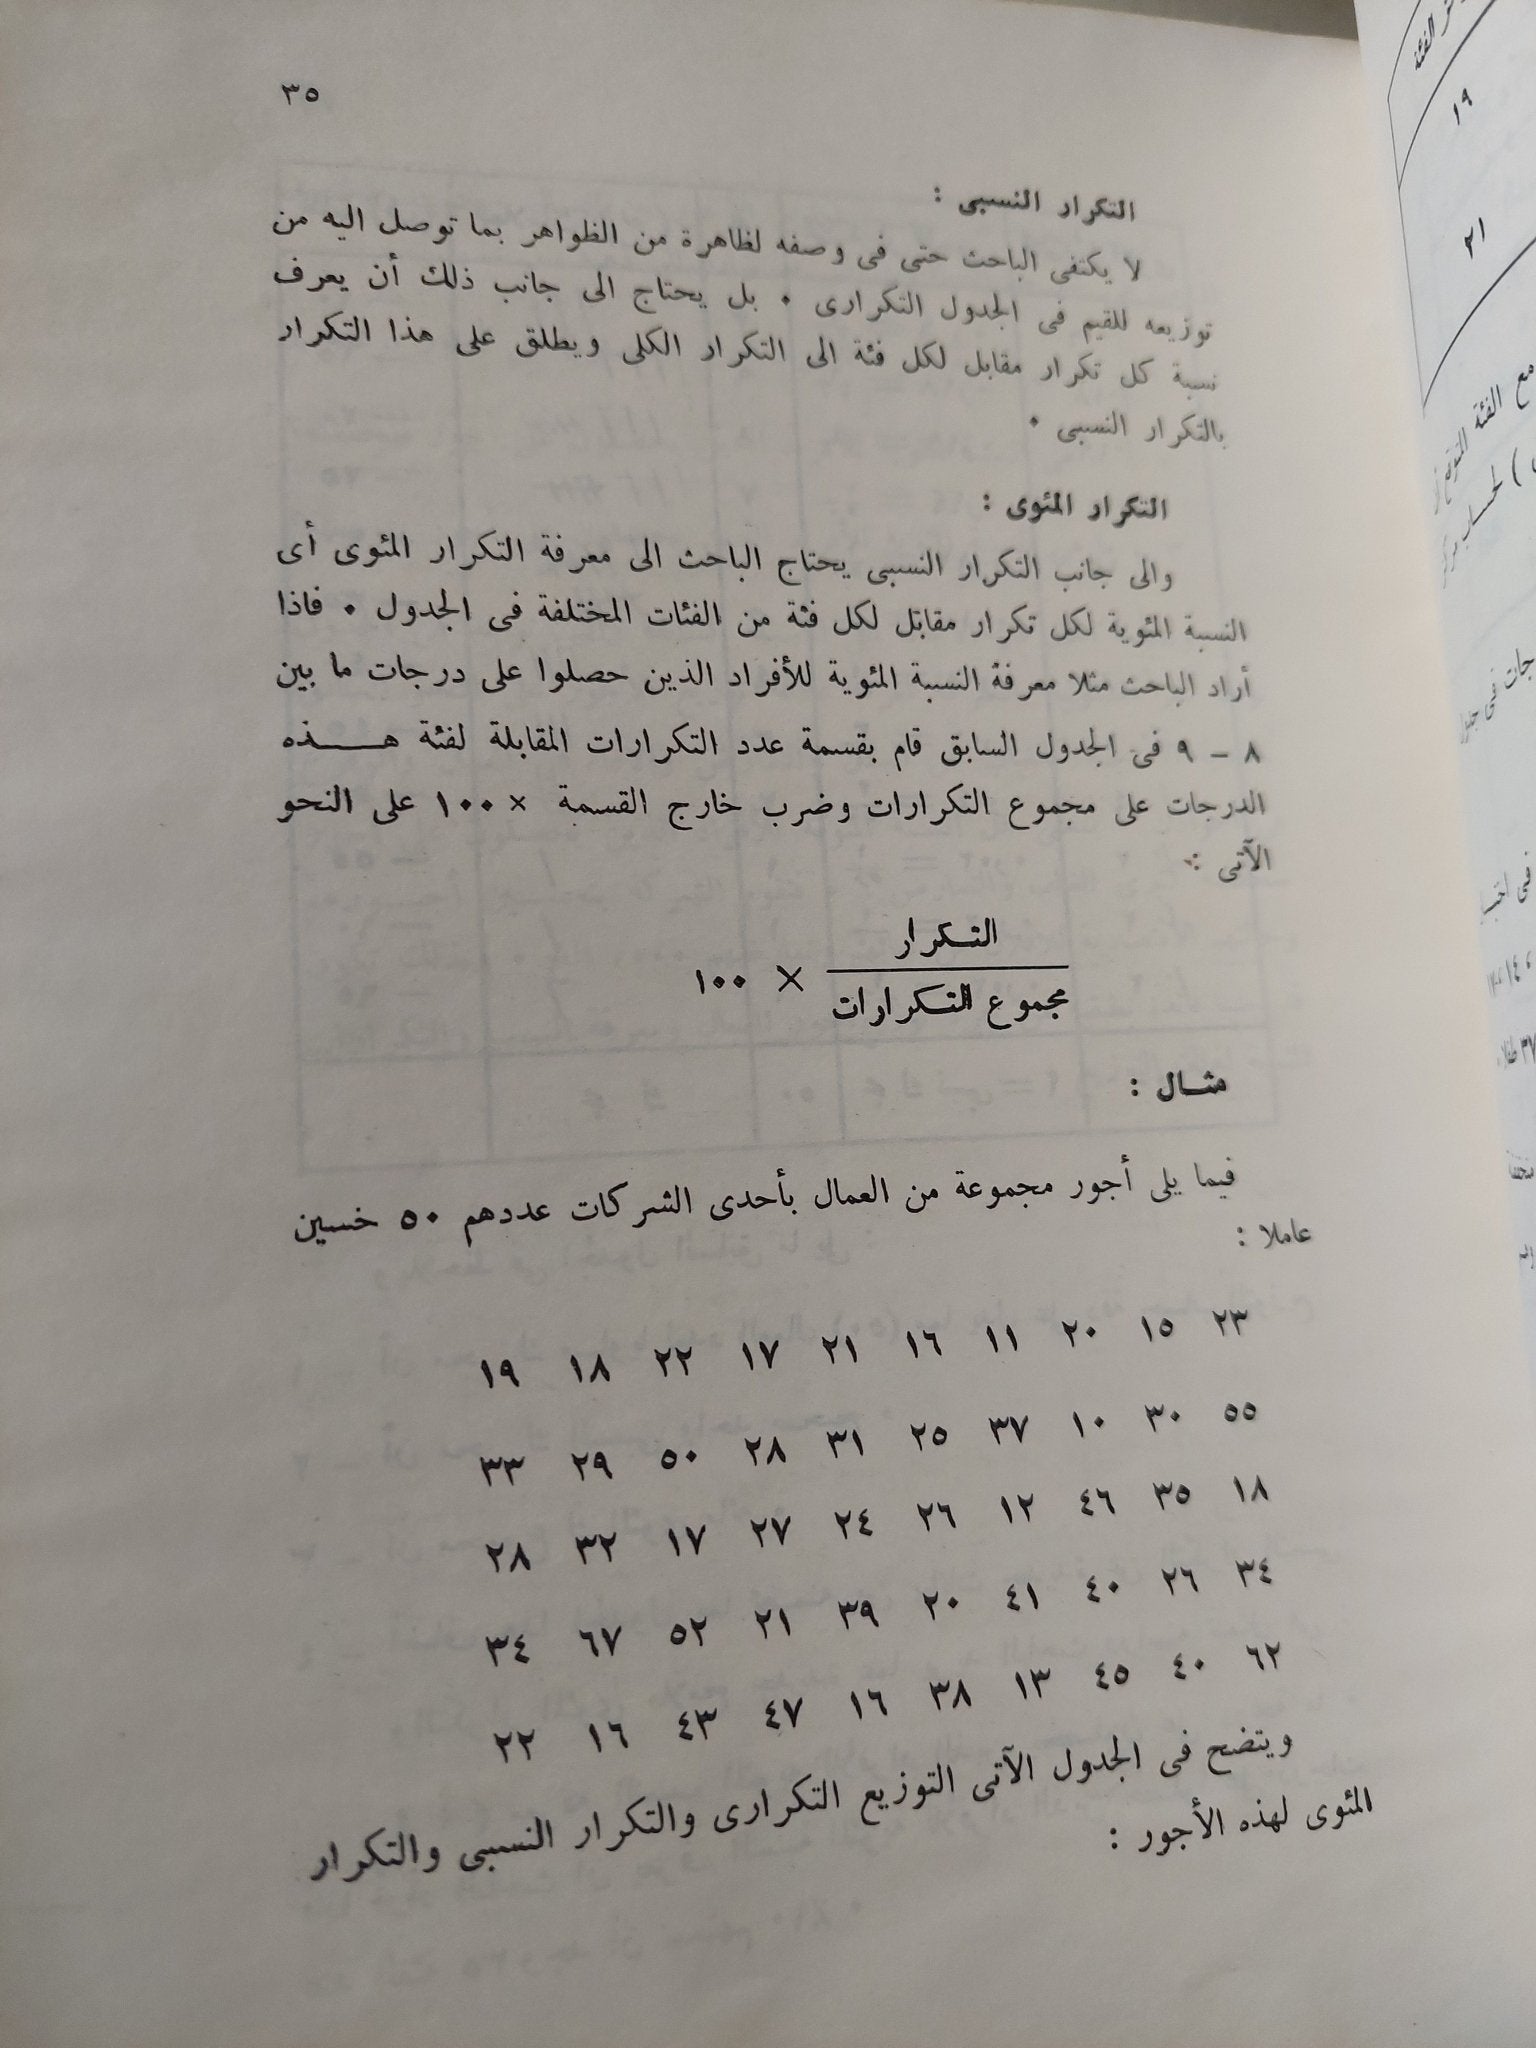 ٣٥
التكرار النسبى :
لا يكتفى الباحث حتى فى وصفه لظاهرة من الظواهر بما توصل اليه من
توزيعه للقيم فى الجدول التكرارى ٠ بل يحتاج الى جانب ذلك أن يعرف
نسبة كل تكرار مقابل لكل فئة الى التكرار الكلى ويطلق على هذا التكرار
بالتكرار النسبى ٠
التكرار المئوى :
والى جانب التكرار النسبى يحتاج الباحث الى معرفة التكرار المئوى أى
النسبة المئوية لكل تكرار مقابل لكل فئة من الفئات المختلفة فى الجدول ٠ فاذا
أراد الباحث مثلا معرفة النسبة المئوية للأفراد الذين حصلوا على درجات ما بين
٨ - ٩ فى الجدول السابق قام بقسمة عدد التكرارات المقابلة لفئة هـــذه
الدرجات على مجموع التكرارات وضرب خارج القسمة × ١٠٠ على النحو
الآتى :
التـكرار
مجموع التـكرارات × ١٠٠
مثـال :
فيما يلى أجور مجموعة من العمال بأحدى الشركات عددهم ٥٠ خسين
عاملا :
٢٣ ١٥ ٢٠ ١١ ١٦ ٢١ ١٧ ٢٢ ١٨ ١٩
٥٥ ٣٠ ١٠ ٣٧ ٢٥ ٣١ ٢٨ ٥٠ ٢٩ ٣٣
١٨ ٣٥ ٤٦ ١٢ ٢٦ ٢٤ ٢٧ ١٧ ٣٢ ٢٨
٣٤ ٢٦ ٤٠ ٤١ ٢٠ ٣٩ ٢١ ٥٢ ٦٧ ٣٤
٦٢ ٤٠ ٤٥ ١٣ ٣٨ ١٦ ٤٧ ٤٣ ١٦ ٢٢
ويتضح فى الجدول الآتى التوزيع التكرارى والتكرار النسبى والتكرار
المئوى لهذه الأجور :
الفئة
١٩
٢١
مع الفئة